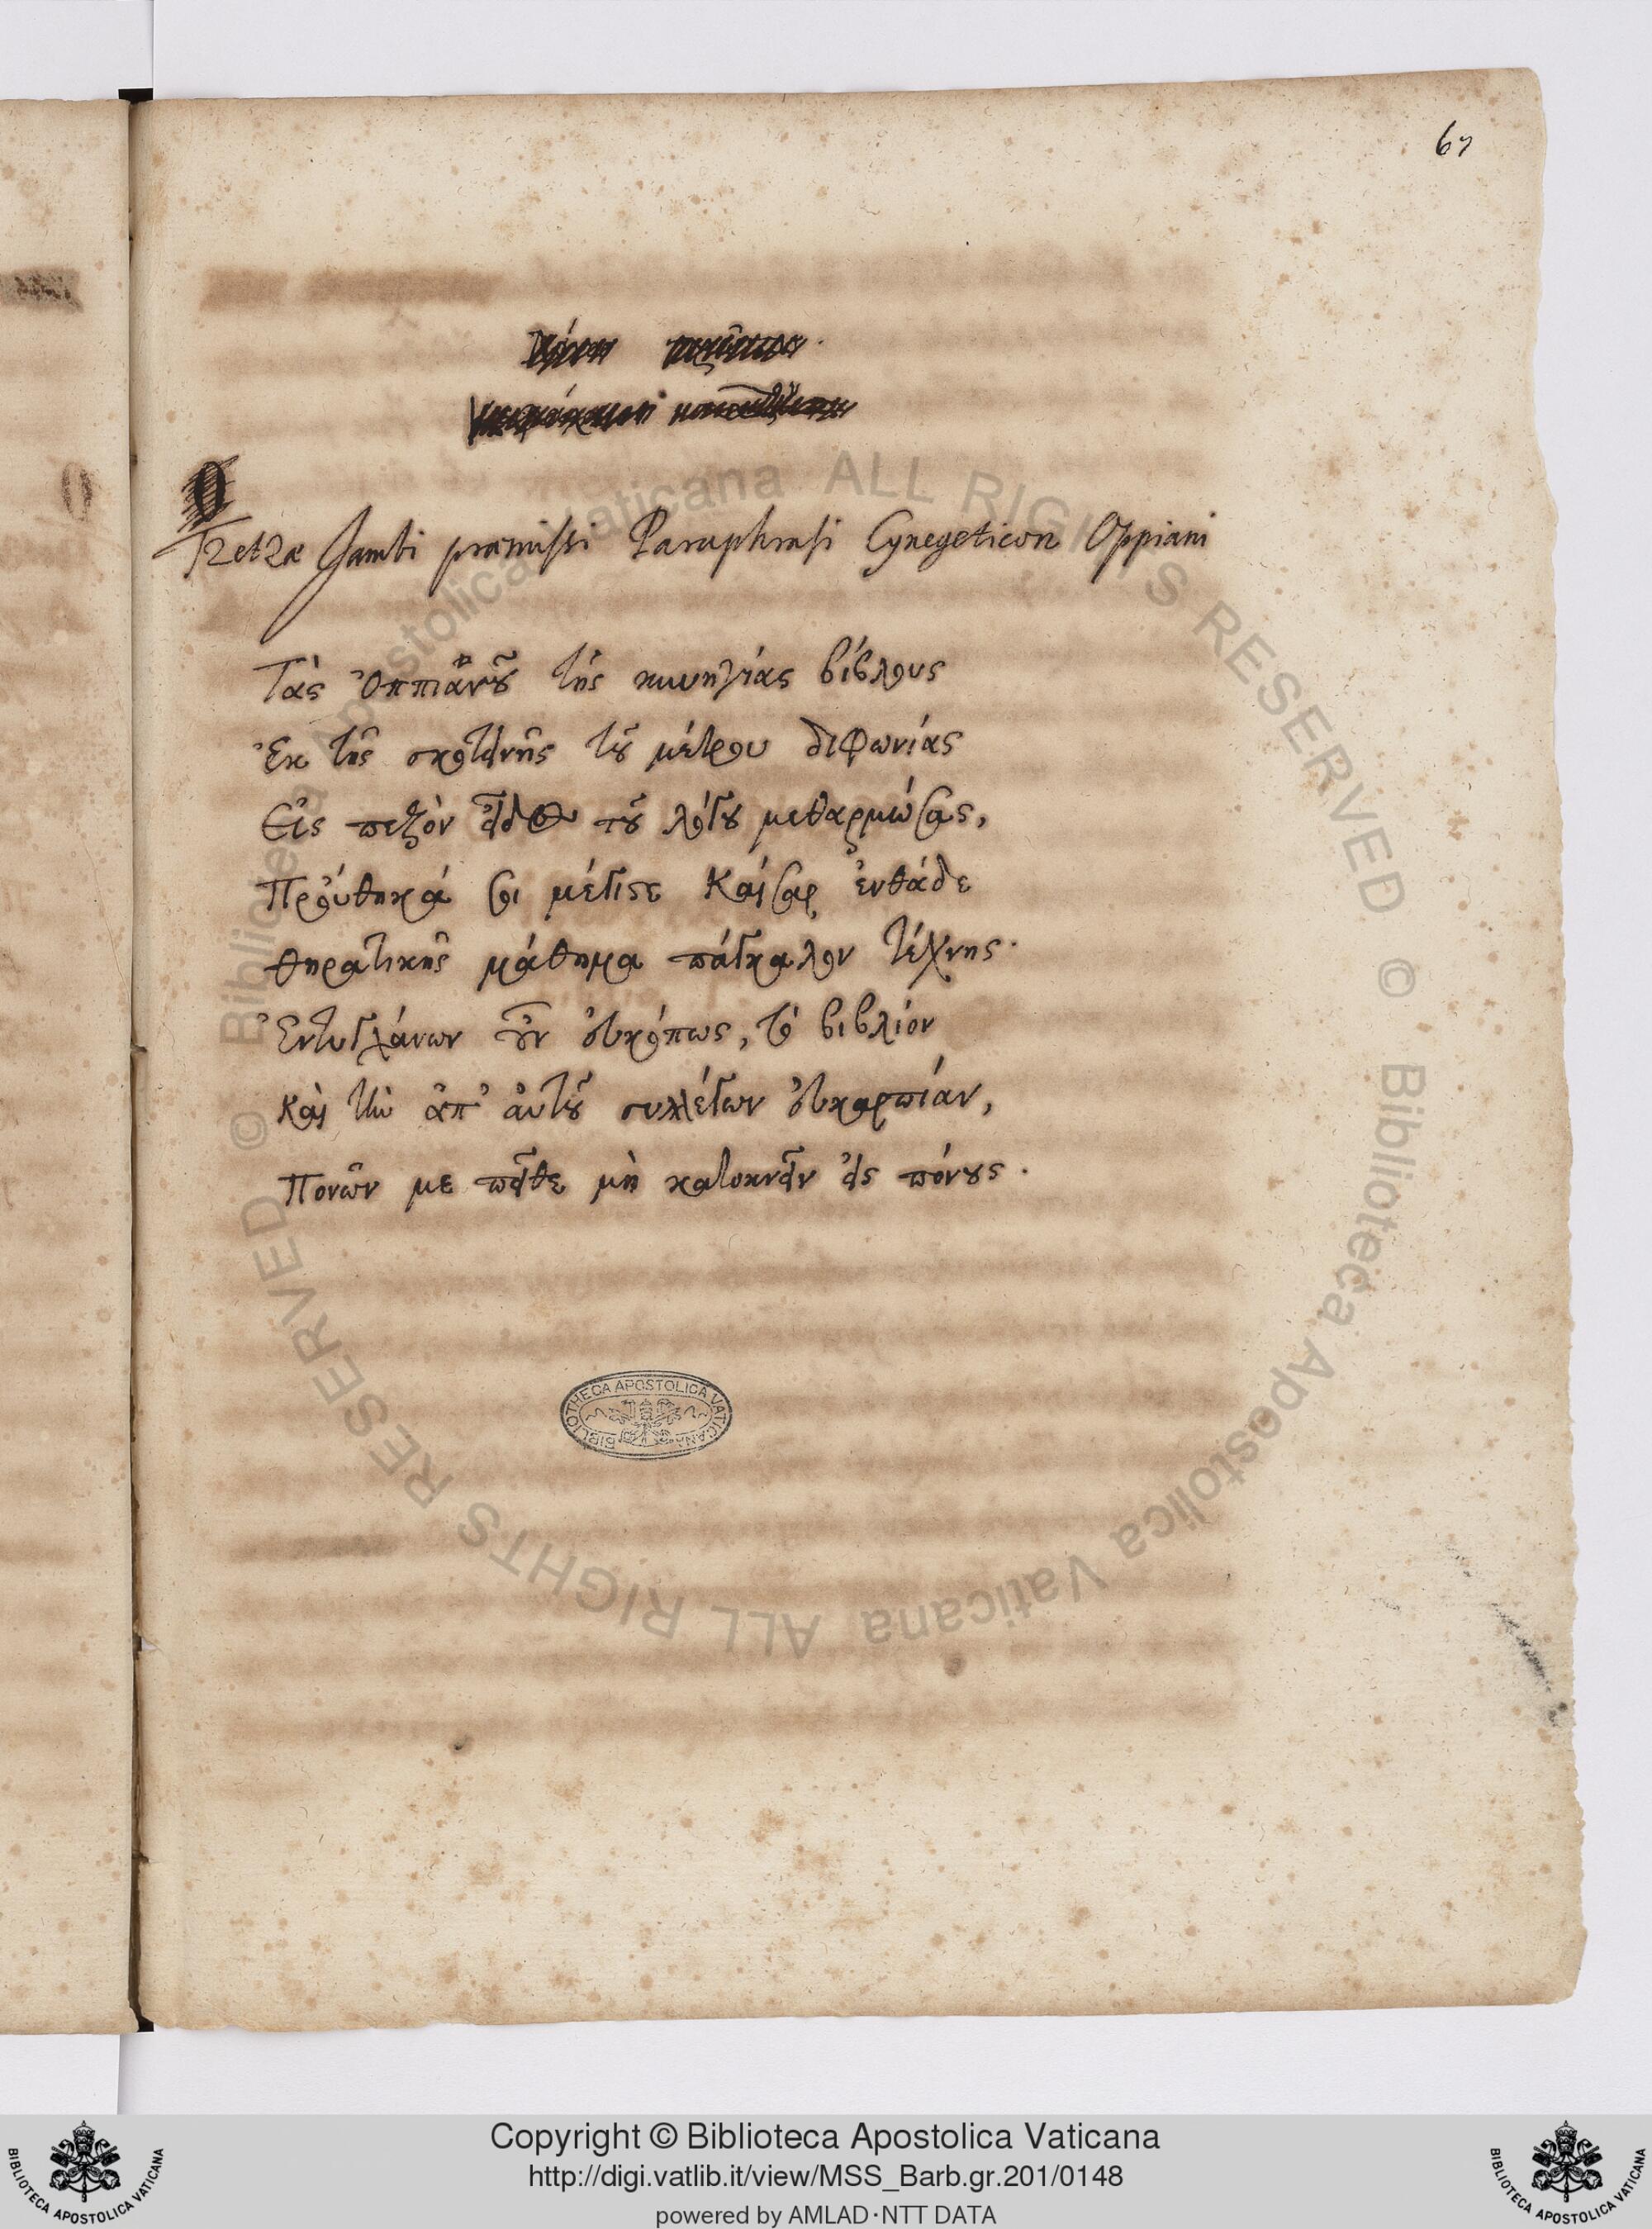 67
Tzetzæ Jambi præmissi Paraphrasi Cynegeticon Oppiani
Τὰς Ὀππιανοῦ τῆς κυνηγίας βίβλους
Ἐκ τῆς σκοτεινῆς τοῦ μέτρου διφωνίας
Εἰς πεζὸν εἶδος τοῦ λόγου μεθαρμόσας,
Προύθηκά σοι μέγιστε Καῖσαρ ἐνθάδε
θηρατικῆς μάθημα πάγκαλον τέχνης.
Ἐντυγχάνων οὖν εὐκόπως, τὸ βιβλίον
Καὶ τὴν ἀπ' αὐτοῦ συλλέγων εὐκαρπίαν,
Πονῶν με πεῖθε μὴ κατοκνεῖν εἰς πόνους.
BIBLIOTHECA APOSTOLICA VATICANA
© Biblioteca Apostolica Vaticana ALL RIGHTS RESERVED © Biblioteca Apostolica Vaticana ALL RIGHTS RESERVED
Copyright © Biblioteca Apostolica Vaticana
http://digi.vatlib.it/view/MSS_Barb.gr.201/0148
powered by AMLAD·NTT DATA
BIBLIOTECA APOSTOLICA VATICANA
BIBLIOTECA APOSTOLICA VATICANA